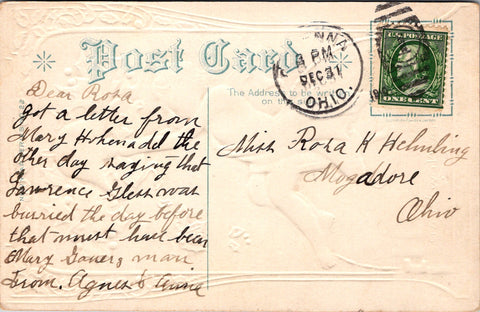 Post Card
The Address to be
on this
U.S. POSTAGE
ONE CENT
NNA
PM
DEC 31
OHIO.
Dear Rosa
got a letter from
Mary Hohenadel the
other day saying that
Lawrence Gless was
burried the day before
that must have been
Mary man
From. Agnes & Annie
Miss Rosa K Helmling
Mogadore
Ohio